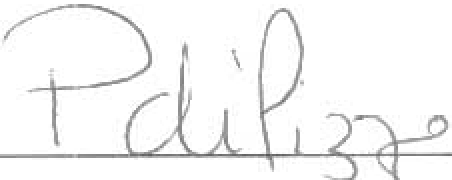 P di Pizzo